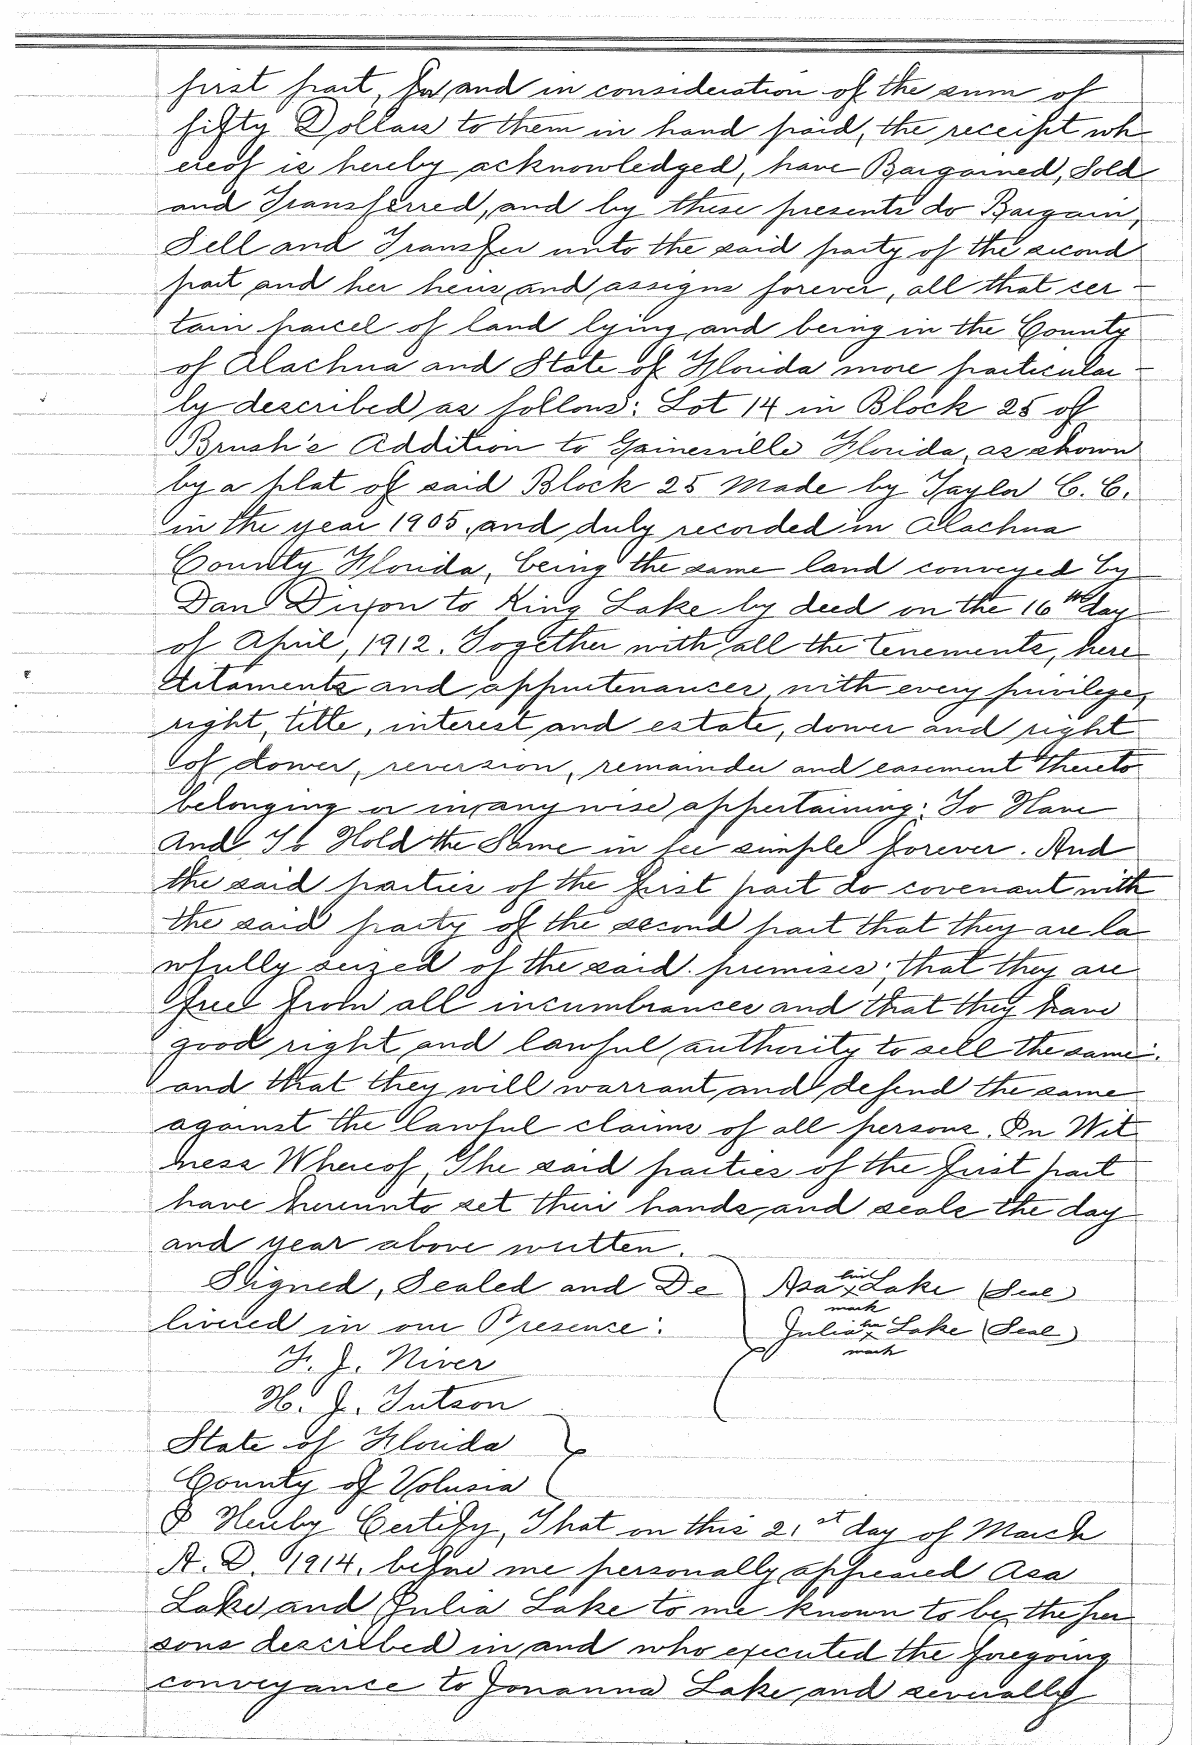 first part, for and in consideration of the sum of
fifty Dollars to them in hand paid, the receipt wh
ereof is hereby acknowledged, have Bargained, Sold
and Transferred, and by these presents do Bargain,
Sell and Transfer unto the said party of the second
part and her heirs and assigns forever, all that cer-
tain parcel of land lying and being in the County
of Alachua and State of Florida more particular-
ly described as follows: Lot 14 in Block 25 of
Brush's Addition to Gainesville Florida, as shown
by a plat of said Block 25 Made by Taylor C. C.
in the year 1905, and duly recorded in Alachua
County Florida, being the same land conveyed by
Dan Dixon to King Lake by deed on the 16th day
of April, 1912. Together with all the tenements, here
ditaments and appurtenances, with every privilege,
right, title, interest and estate, dower and right
of dower, reversion, remainder and easement thereto
belonging or in any wise appertaining: To Have
And To Hold the Same in fee simple forever. And
the said parties of the first part do covenant with
the said party of the second part that they are la
wfully seized of the said premises; that they are
free from all incumbrances and that they have
good right and lawful authority to sell the same;
and that they will warrant and defend the same
against the lawful claims of all persons. In Wit
ness Whereof, The said parties of the first part
have hereunto set their hands and seals the day
and year above written.
Signed, Sealed and De Asa his x mark Lake (Seal)
livered in our Presence: Julia her x mark Lake (Seal)
F. J. Niver
H. J. Tutson
State of Florida
County of Volusia
I Hereby Certify, That on this 21st day of March
A. D. 1914, before me personally appeared Asa
Lake and Julia Lake to me known to be the per
sons described in and who executed the foregoing
conveyance to Jonanna Lake and severally